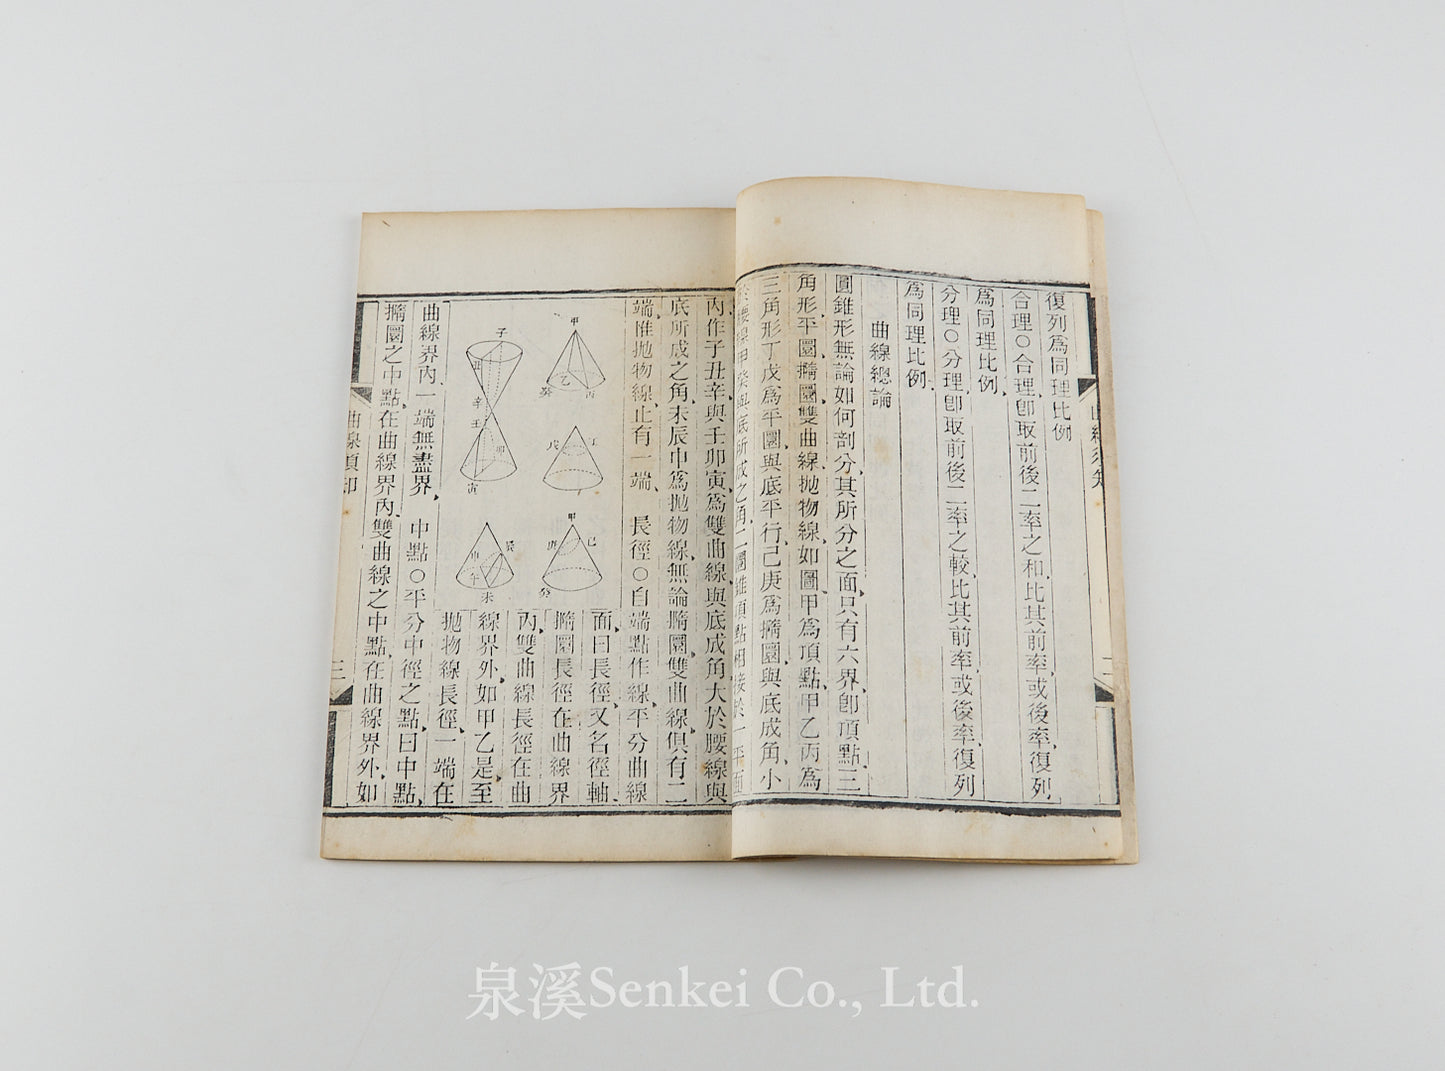 復列爲同理比例
合理○合理卽取前後二率之和比其前率或後率復列
爲同理比例
分理○分理卽取前後二率之較比其前率或後率復列
爲同理比例
曲線總論
圓錐形無論如何剖分其所分之面只有六界卽頂點三
角形平圜撱圜雙曲線拋物線如圖甲爲頂點甲乙丙爲
三角形丁戊爲平圜與底平行己庚爲撱圜與底成角小
於腰線甲癸與底所成之角二圜錐頂點相接於一平面
內作子丑辛與壬卯寅爲雙曲線與底成角大於腰線與
底所成之角未辰申爲拋物線無論撱圜雙曲線俱有二
端惟拋物線止有一端 長徑○自端點作線平分曲線
面曰長徑又名徑軸
撱圜長徑在曲線界
內雙曲線長徑在曲
線界外如甲乙是至
拋物線長徑一端在
曲線界內一端無盡界 中點○平分中徑之點曰中點
撱圜之中點在曲線界內雙曲線之中點在曲線界外如
曲線須知
三
二
子
丑
辛
壬
卯
寅
甲
乙
丙
癸
丁
戊
甲
己
庚
癸
癸
申
午
未
泉溪Senkei Co., Ltd.